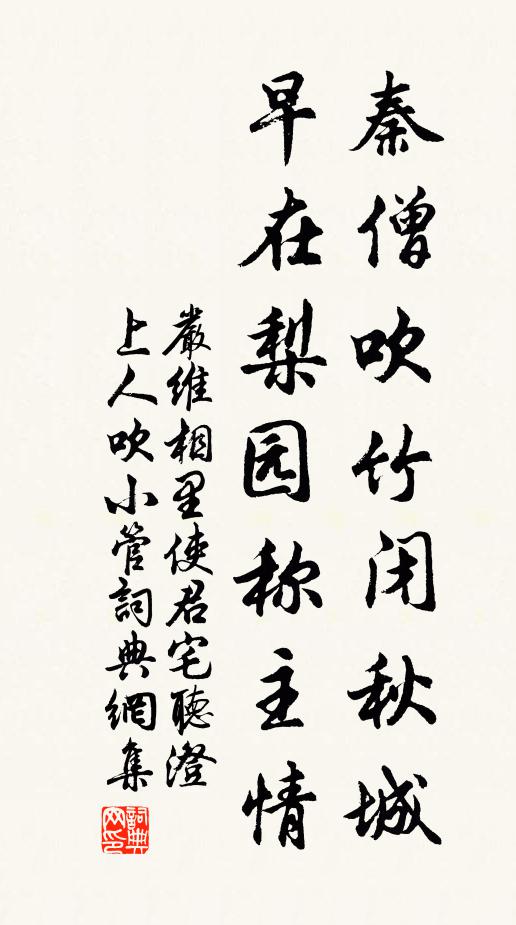 秦僧吹竹闭秋城
早在梨园称主情
嚴维相里使君宅聽澄
上人吹小管詞典網集
詞典网印